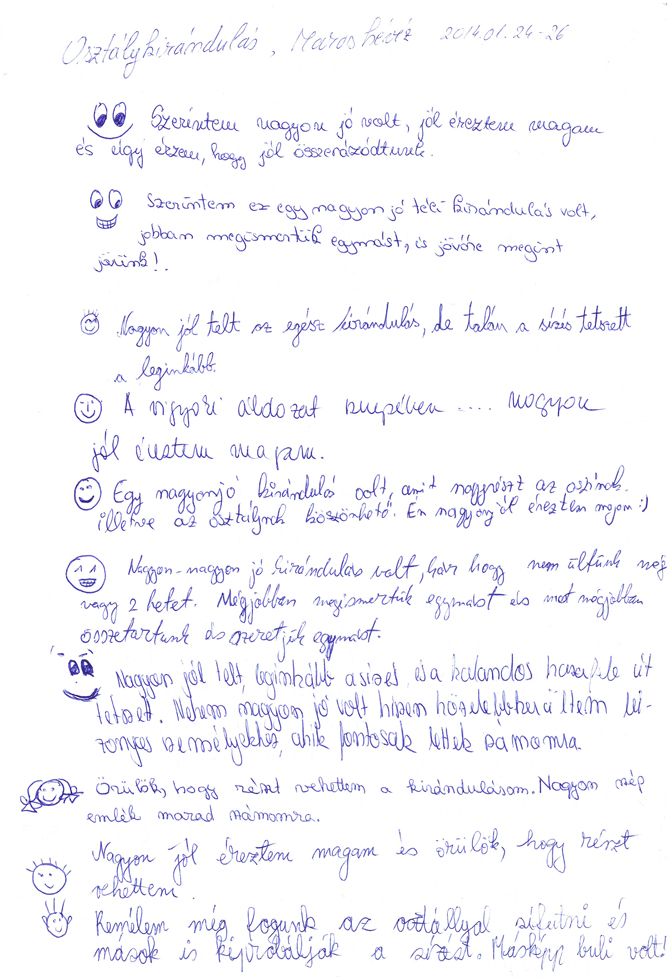 Osztálykirándulás, Maroshévíz 2014.01.24-26
Szerintem nagyon jó volt, jól éreztem magam
és úgy érzem, hogy jól összerázódtunk.
Szerintem ez egy nagyon jó téli kirándulás volt,
jobban megismertük egymást, és jövőre megint
jövünk!.
Nagyon jól telt az egész kirándulás, de talán a sízés tetszett
a leginkább.
A áldozat szerepében .... nagyon
jól éreztem magam.
Egy nagyon jó kirándulás volt, amit nagyrészt az osinak.
illetve az osztálynak köszönhető. Én nagyon jól éreztem magam :)
Nagyon-nagyon jó kirándulás volt, kár hogy nem ültünk még
vagy 2 hetet. Mégjobban megismertük egymást és most mégjobban
összetartunk és szeretjük egymást.
Nagyon jól telt, leginkább a sízés, és a kalandos hazafele út
tetszet. Nekem nagyon jó volt hiszen közelebb kerültem bi-
zonyos személyekhez, akik fontosak lettek számomra.
Örülök, hogy részt vehettem a kiránduláson. Nagyon szép
emlék marad számomra.
Nagyon jól éreztem magam és örülök, hogy részt
vehettem.
Remélem még fogunk az osztállyal sífutni és
mások is kipróbálják a sízést. Másképp buli volt!